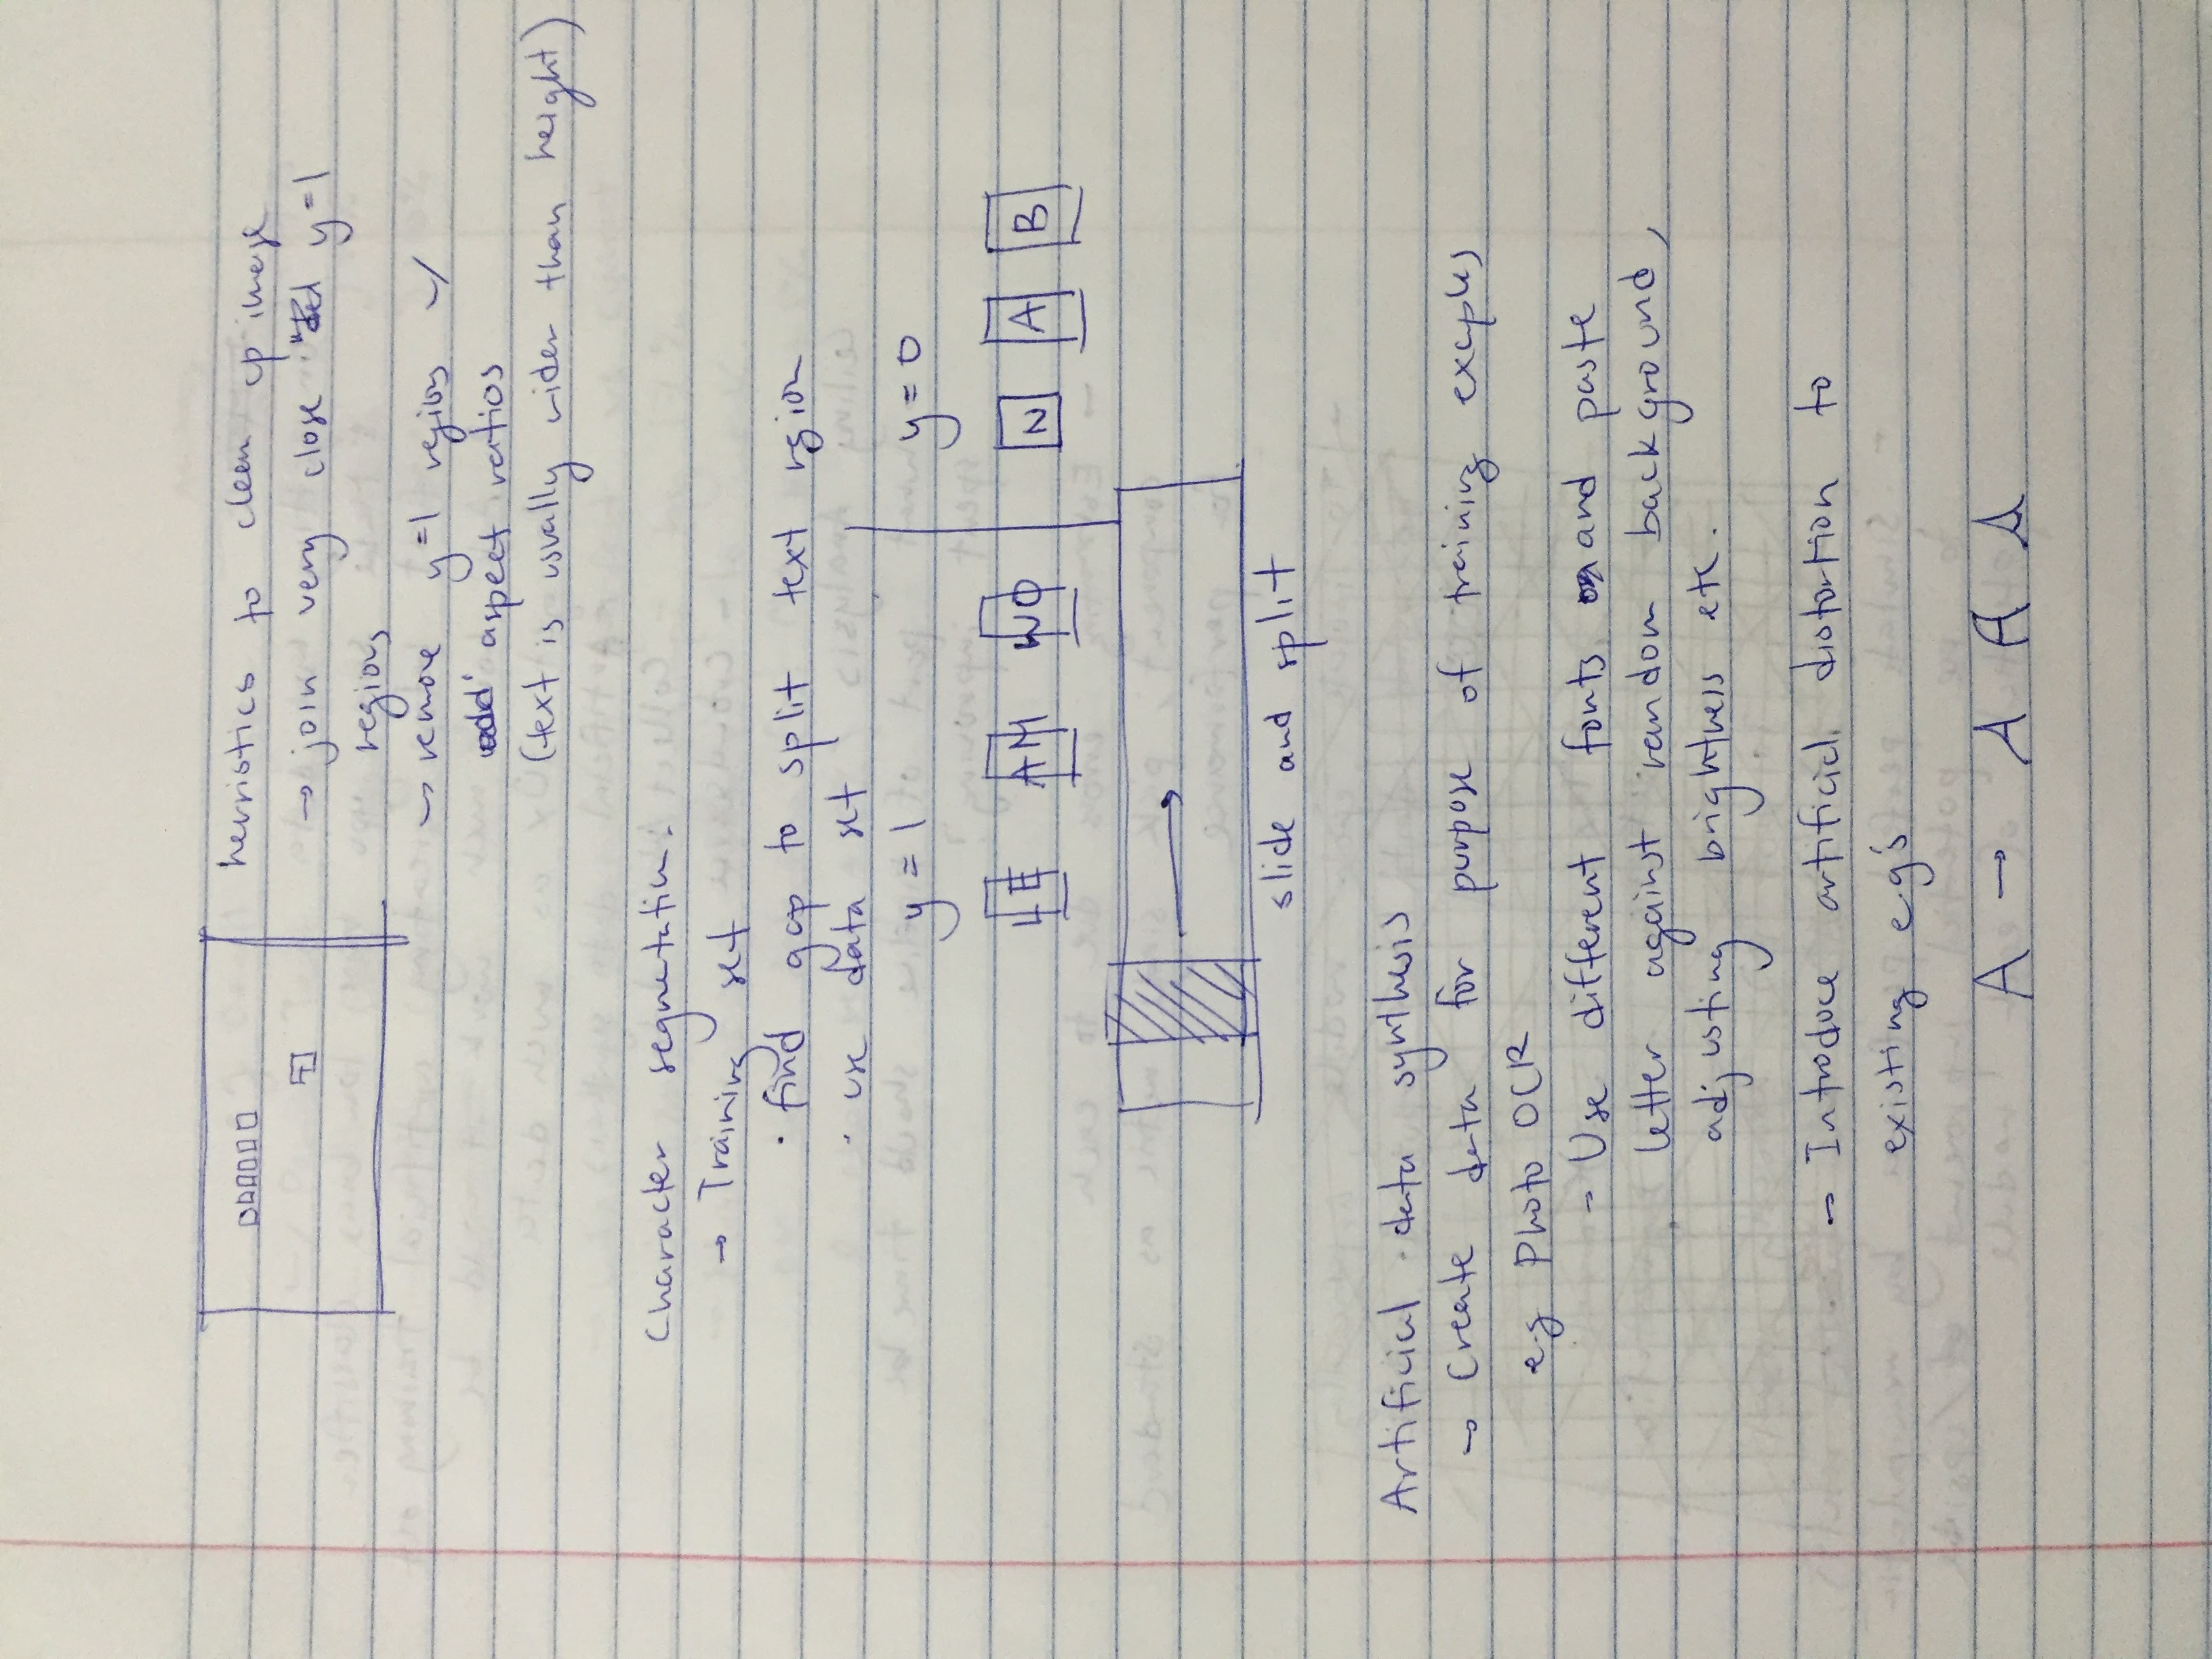 heuristics to clean up image
→ join very close y=1
regions
→ remove y=1 regions w/
odd aspect ratios
(text is usually wider than height)
Character segmentation:
→ Training set
· find gap to split text rgion
· use data set
y=1 y=0
LE AM WO N A B
slide and split
Artificial data synthesis
→ Create data for purpose of training exaples
e.g Photo OCR
→ Use different fonts and paste
letter against random background,
adjusting brightness etc.
→ Introduce artificial distortion to
existing eg's
A → A A A